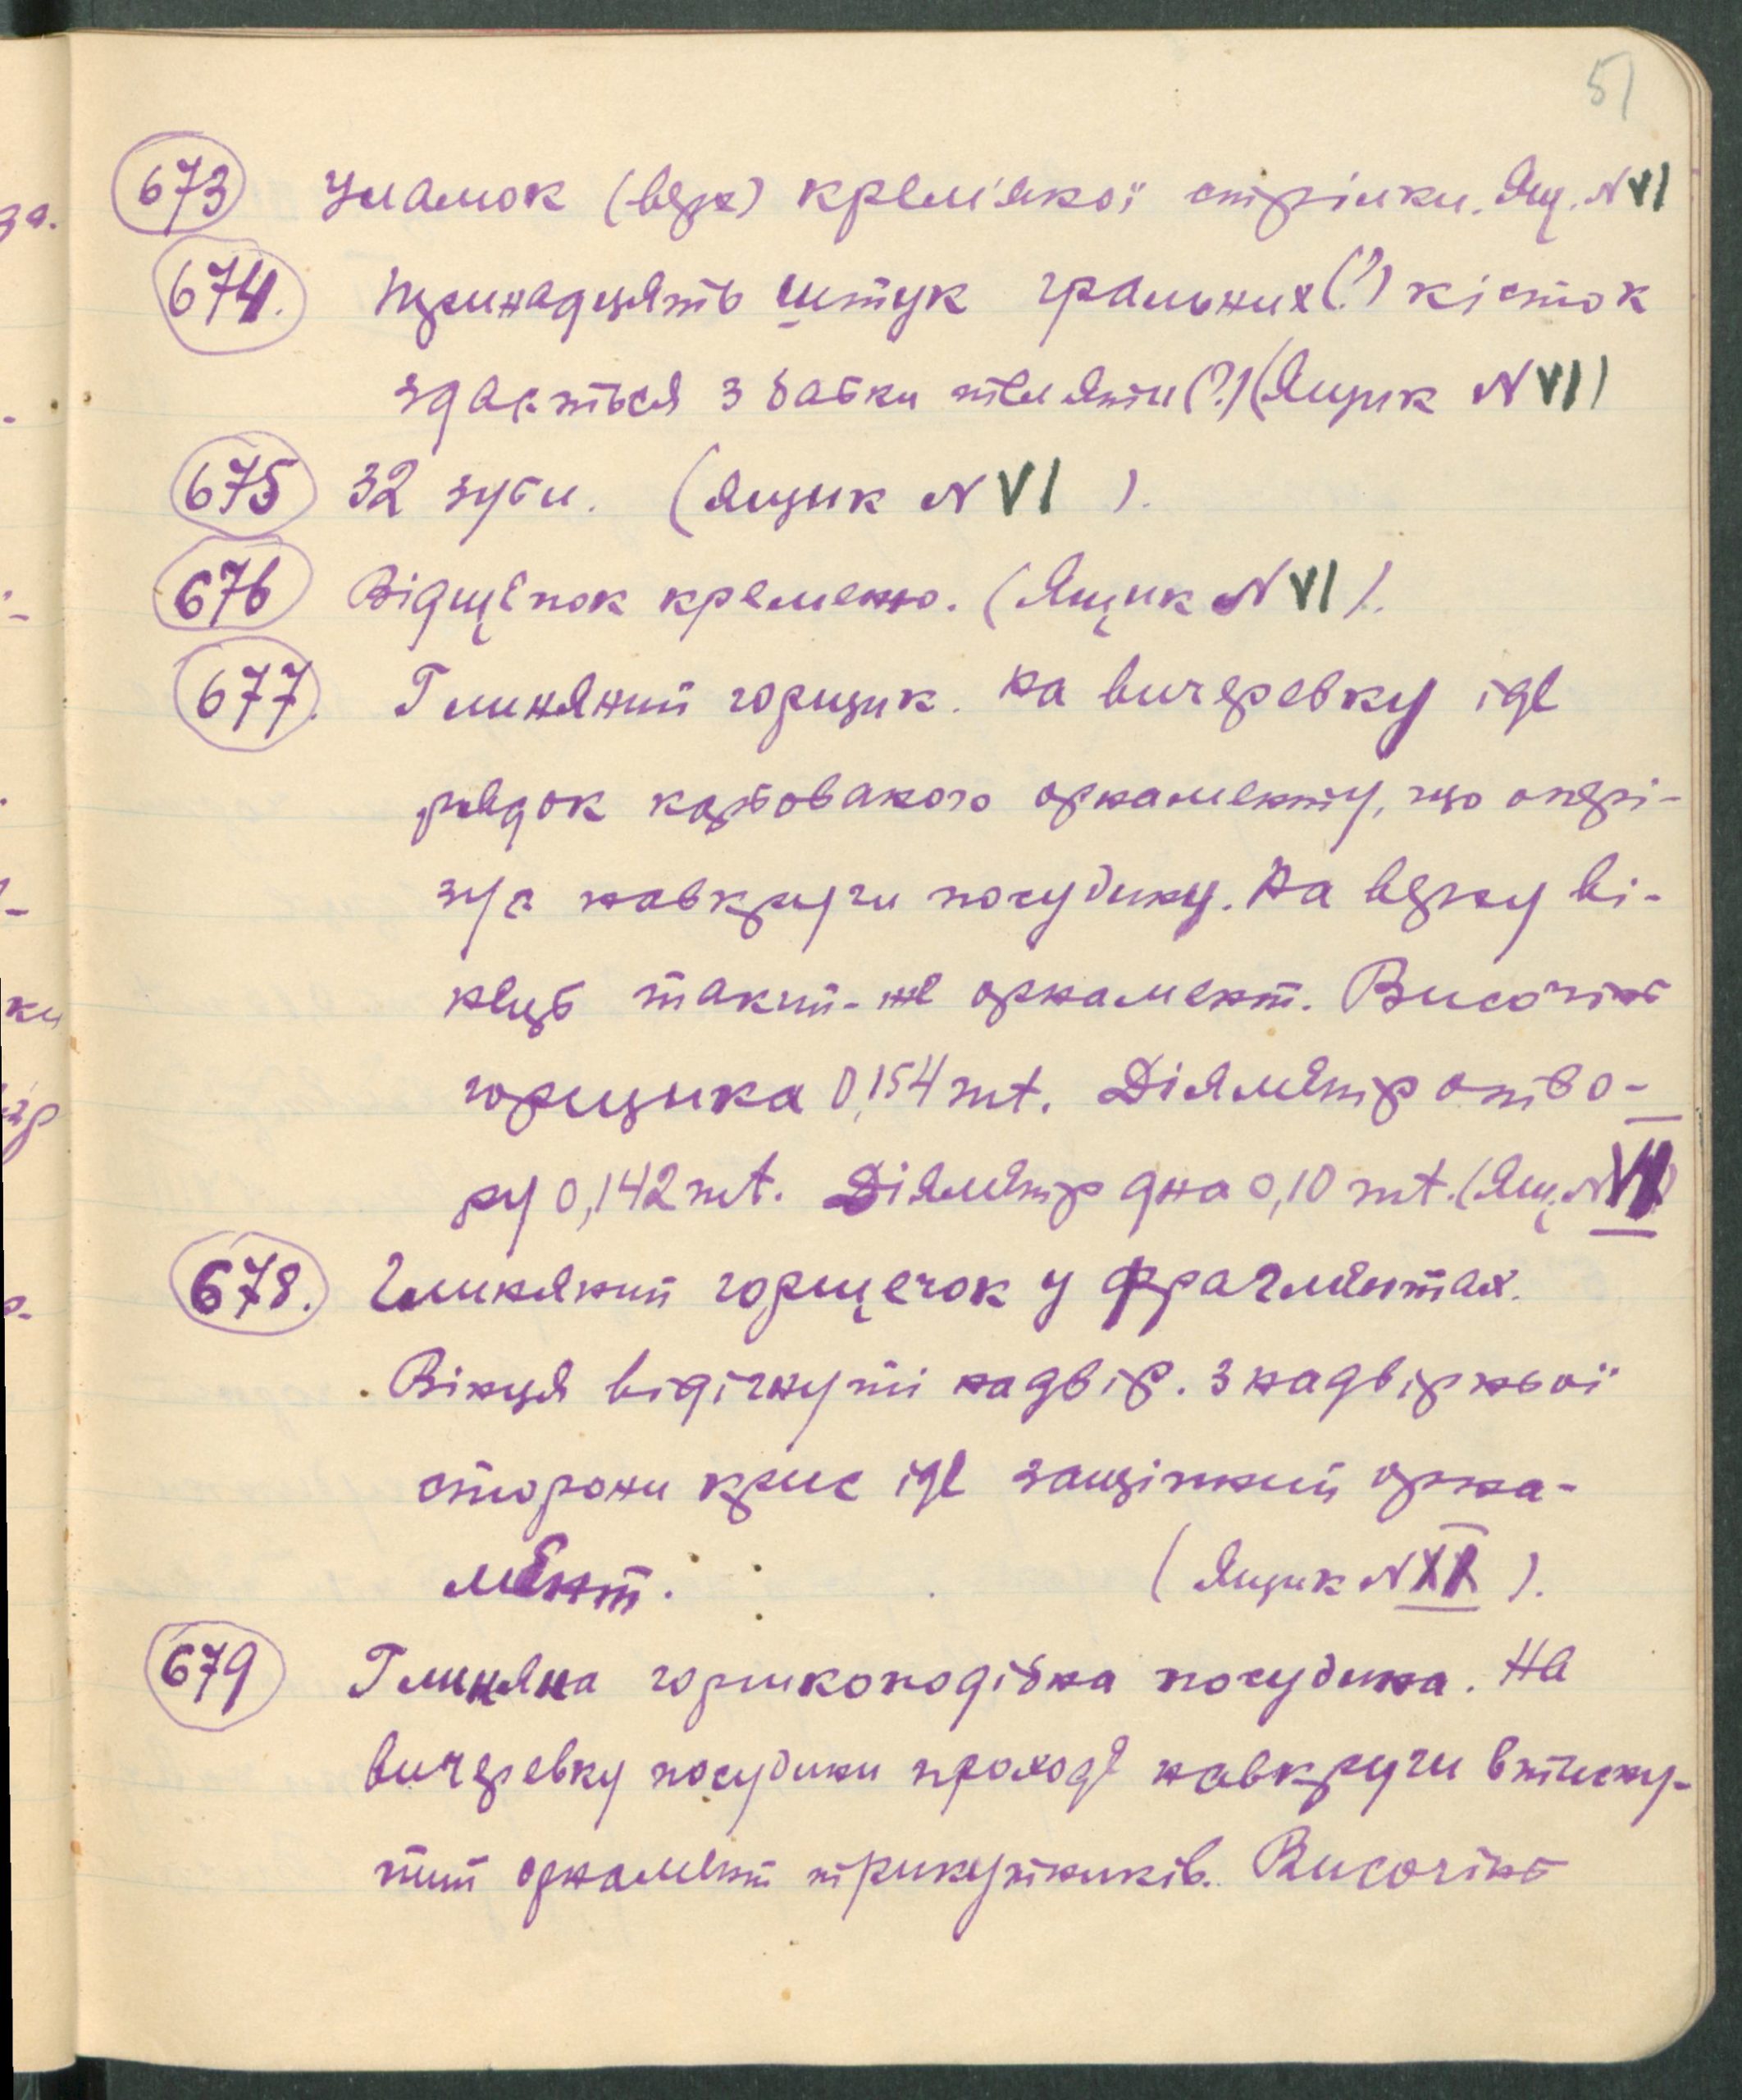 51
673 Уламок (верх) кремʼяної стрілки. Ящ. N VI
674. Тринадцять штук гральних (?) кісток
здається з бабки теляти (?) (Ящик N VI)
675 32 зуби. (Ящик N VI ).
676 Відщепок кременю. (Ящик N VI ).
677. Глиняний горщик. На вичеревку іде
рядок карбованого орнаменту, що опері-
зує навкруги посудину. На верху ві-
нець такий-же орнамент. Височінь
горщика 0,154 mt. Діяметр отво-
ру 0,142 mt. Діяметр дна 0,10 mt. (Ящ. N VII)
678. Глиняний горщечок у фрагментах.
Вінця відігнуті надвір. З надвірньої
сторони крис іде защіпний орна-
мент. (Ящик N XX ).
679 Глиняна горшкоподібна посудина. На
вичеревку посудини проходе навкруги втисну-
тий орнамент трикутників. Височінь